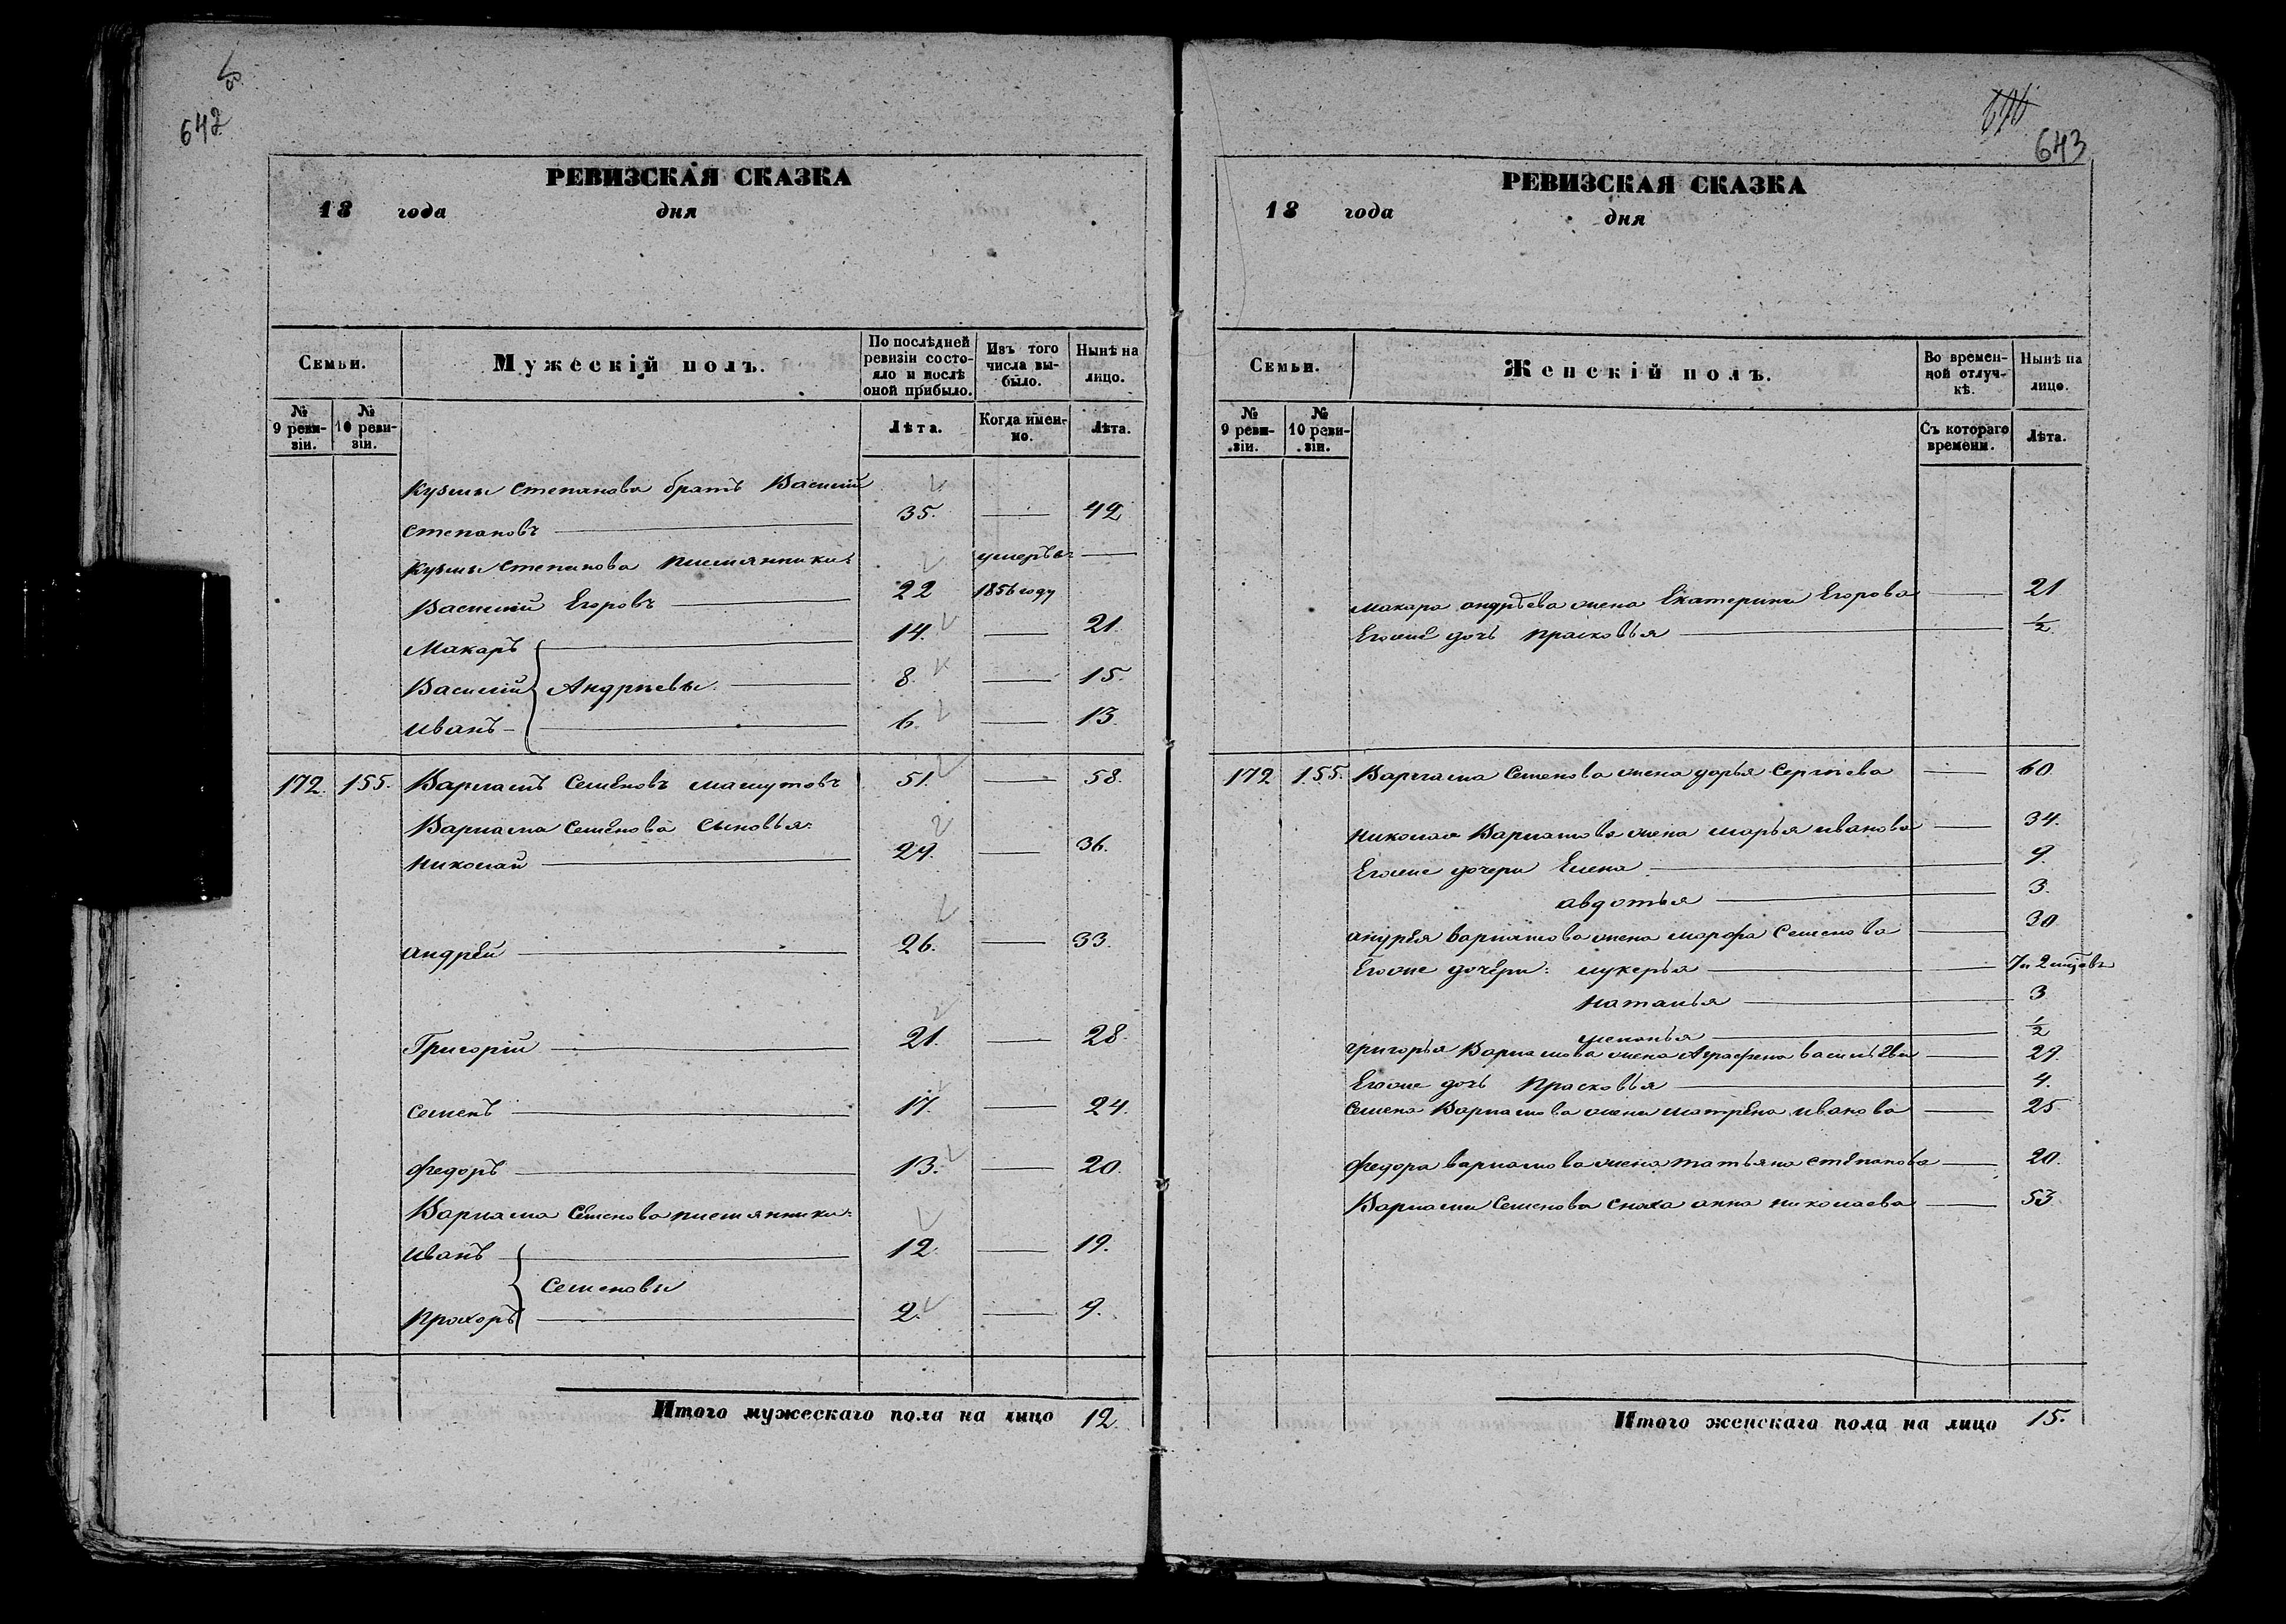 642
РЕВИЗСКАЯ СКАЗКА
18 года дня
Семьи. Мужескій полъ. По послѣдней ревизіи состояло и послѣ оной прибыло. Изъ того числа выбыло. Нынѣ на лицо.
№ 9 ревизіи. № 10 ревизіи. Лѣта. Когда именно. Лѣта.
Кузьмы Степанова братъ Василій
Степановъ 35. 42
Кузьмы Степанова племянники: умеръ въ
Василій Егоровъ 22 1856 году
Макаръ 14. 21.
Василій Андрѣевы 8. 15.
Иванъ 6. 13.
172. 155. Варламъ Семеновъ 51. 58.
Варлама Семенова сыновья:
Николай 29. 36.
Андрей 26. 33.
Григорій 21. 28.
Семенъ 17. 24.
Федоръ 13. 20.
Варлама Семенова племянники:
Иванъ 12. 19.
Семеновы
Прохоръ 2. 9.
Итого мужескаго пола на лицо 12.
643
РЕВИЗСКАЯ СКАЗКА
18 года дня
Семьи. Женскій полъ. Во временной отлучкѣ. Нынѣ на лицо.
№ 9 ревизіи. № 10 ревизіи. Съ котораго времени. Лѣта.
Макара Андрѣева жена Екатерина Егорова 21
Егоже дочь Прасковья ½
172 155. Варлама Семенова жена Дарья Сергѣева 60
Николая Варламова жена Марья Иванова 34.
Егоже дочери Елена 9.
Авдотья 3.
Андрея Варламова жена Марфа Семенова 30
Егоже дочери: Лукерья
Наталья 3
½
Григорья Варламова жена Аграфена Васильева 29.
Егоже дочь Прасковья 4.
Семена Варламова жена Матрена Иванова 25
Федора Варламова жена Татьяна Степанова 20.
Варлама Семенова сноха Анна Николаева 53
Итого женскаго пола на лицо 15.